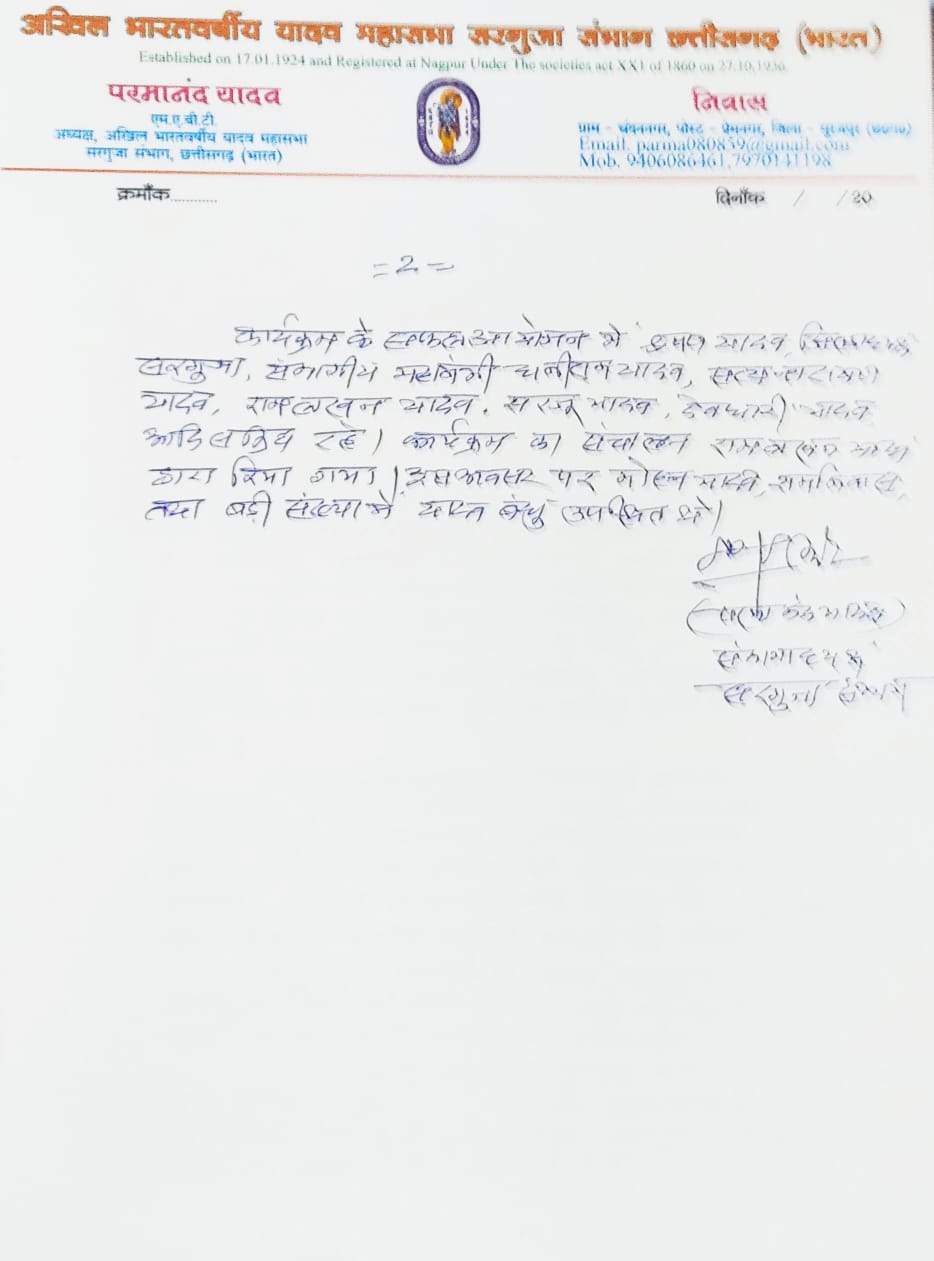 अखिल भारतवर्षीय यादव महासभा सरगुजा संभाग छत्तीसगढ़ (भारत)
Established on 17.01.1924 and Registered at Nagpur Under The societies act XX1 of 1860 on 27.10.1936.
परमानंद यादव
एम.ए.बी.टी.
अध्यक्ष, अखिल भारतवर्षीय यादव महासभा
सरगुजा संभाग, छत्तीसगढ़ (भारत)
निवास
ग्राम - चंदननगर, पोस्ट - प्रेमनगर, जिला - सूरजपुर (छ०ग०)
Email. parma080859@gmail.com
Mob. 9406086461,7970141198
क्रमाँक...........
दिनाँक / /20
= 2 =
कार्यक्रम के सफल आयोजन में यादव
सरगुजा, संभागीय महामंत्री यादव, सत्यनारायण
यादव, रामलखन यादव, सरजू यादव, देवधारी यादव
आदि सक्रिय रहे। कार्यक्रम का संचालन रामलखन यादव
द्वारा किया गया। इस अवसर पर मोहन यादव, रामनिवास,
तथा बड़ी संख्या में यादव बंधु उपस्थित थे।
संभागाध्यक्ष
सरगुजा संभाग